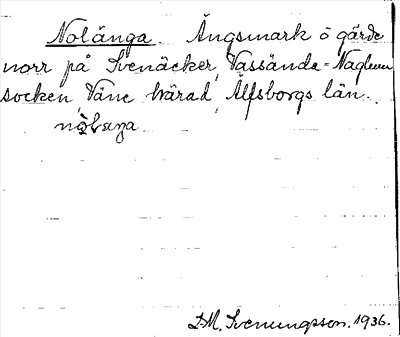 Nolänga. Ängsmark o gärde
norr på Svenäcker, Vassända-Naglum
socken, Väne härad, Älfsborgs län.
D.M. Svenungsson. 1936.